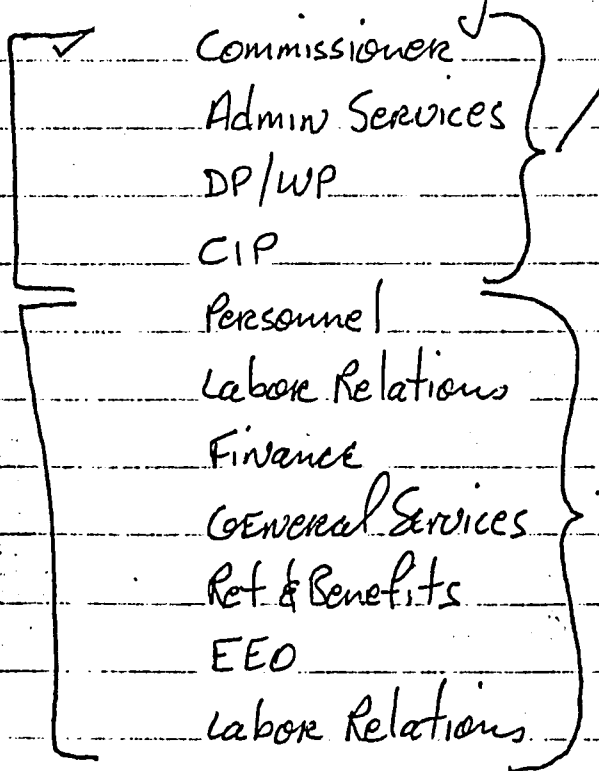 ✓ Commissioner ✓
Admin Services
DP/WP
CIP
Personnel
Labor Relations
Finance
General Services
Ret & Benefits
EEO
Labor Relations